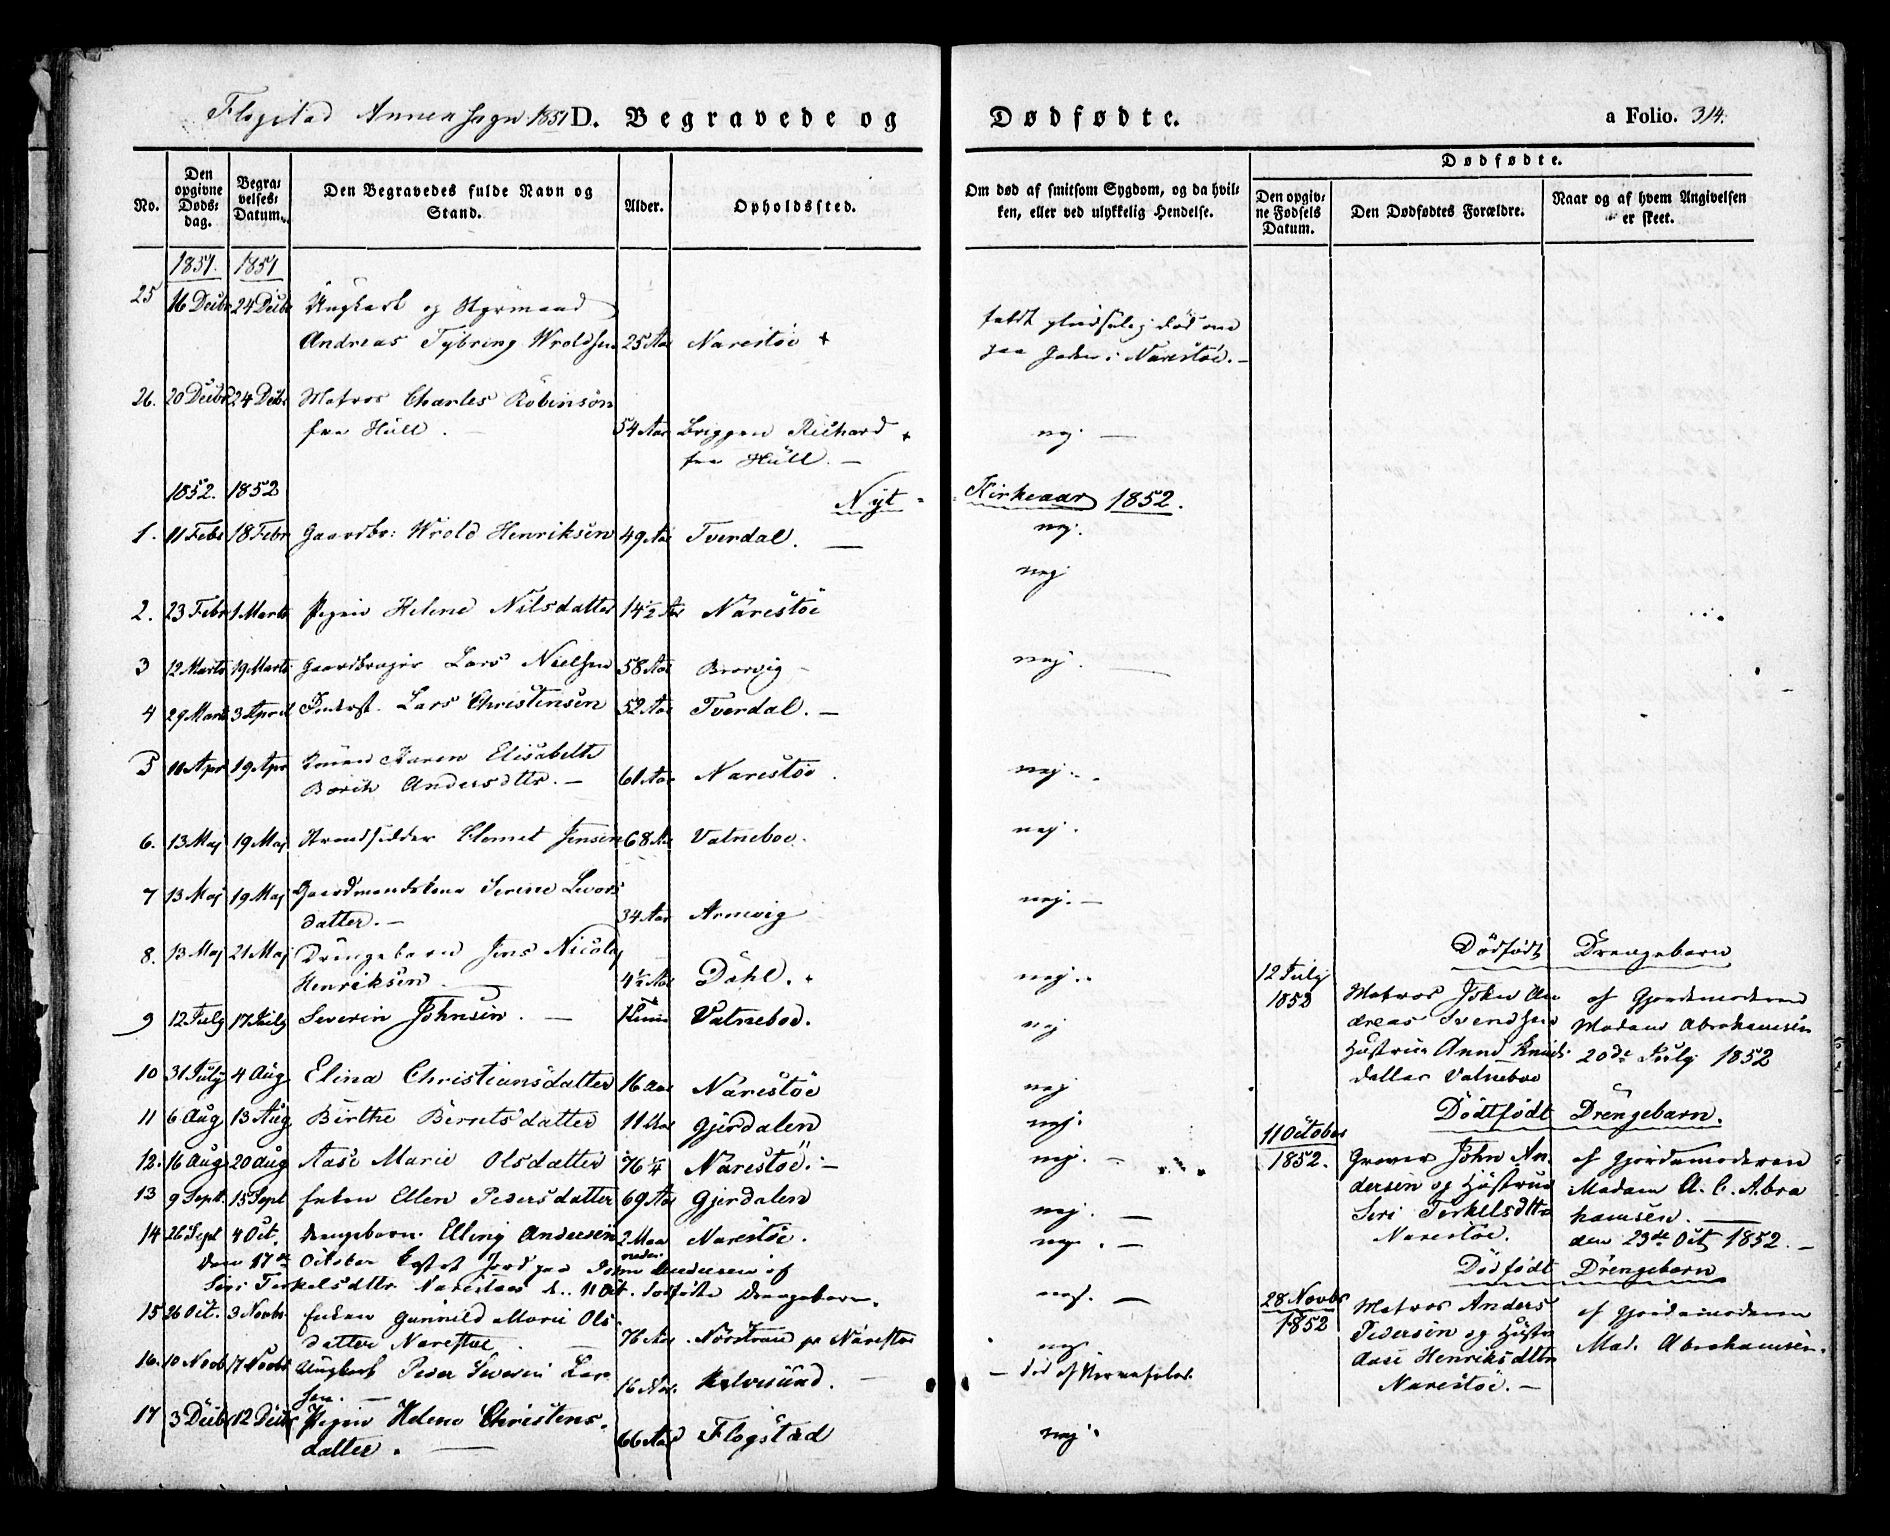 Flogstad Annexsogn 1851 D. Begravede og Dødfødte. a Folio. 314.
No.
Den opgivne Døds-dag.
Begra-velses-Datum.
Den Begravedes fulde Navn og Stand.
Alder.
Opholdssted.
Om død af smitsom Sygdom, og da hvil-ken, eller ved ulykkelig Hendelse.
Dødfødte.
Den opgiv-ne Fødsels Datum.
Den Dødfødtes Forældre.
Naar og af hvem Angivelsen er skeet.
1851. 1851
25 16 Decbr 24 Decbr Ungkarl og Styrmand
Andreas Tybring Wroldsen 25 Aar Narestöe +
faldt pludselig død om
paa Gaden i Narestöe. -
26. 20 Decbr 24 Decbr Matros Charles Robinson
fra Hull. - 54 Aar Briggen Richard +
fra Hull. - nej -
1852. 1852 Nyt Kirkeaar 1852.
1. 11 Febr 18 Febr Gaardbr: Wrold Henriksen 49 Aar Tverdal. - nej.
2. 23 Febr 1 Marts Pigen Helene Nilsdatter 14½ Aar Narestöe nej
3 12 Marts 19 Marts Gaardbruger Lars Nielsen 58 Aar Borvig - nej.
4 29 Marts 3 April Inderst. Lars Christensen 52 Aar Tverdal. -
5 10 Apr 19 Apr Konen Karen Elisabeth
Andersdtr. - 61 Aar Narestöe nej.
6. 13 Maj 19 Maj Strandsidder Clemet Jensen 68 Aar Vatneboe. nej.
7 13 Maj 19 Maj Gaardmandskone Serine Lvors
datter. - 34 Aar Arnevig nej. -
8. 13 Maj 21 Maj Drengebarn Jens Nicolaj
Henriksen 4½ Aar Dahl. nej.
9 12 July 17 July Severin Johnsen. - Vatneboe. nej
10 31 July 4 Aug Elina Christiansdatter 16 Aar Narestöe nej
11 6 Aug 13 Aug Birthe Berntsdatter 11 Aar Gjerdalen nej.
12. 16 Aug 20 Aug Aase Marie Olsdatter 76¼ Narestöe. - nej. -
13 9 Sept. 15 Sept Enken Ellen Pedersdatter 69 Aar Gjerdalen nej. -
14 26 Sept 4 Oct. Drengebarn Elling Andersen 2 Maaneder Narestöe. nej. -
Den 17de October kastet Jord paa John Andersen og
Siri Terkelsdtr Narestöes d. 11 Oct. dødfødte Drengebarn.
15 26 Oct. 3 Novbr Enken Gunnild Marie Ols
datter Narestöe 76 Aar. Nordraae pr Narestöe nej. -
16. 10 Novb 17 Novbr Ungkarl Peder Severin Lar
sen. - 16 Aar. Kalvesund. - - död af Nervefeber.
17 3 Decbr 12 Decbr Pigen Helene Christens-
datter. - 66 Aar Flogstad nej.
Dödfödt Drengebarn
12 July 1852
Matros John An
dreas Svendsen
Hustrue Anne Knuds
datter Vatneboe
af Gjordemoderen
Madam Abrahamsen
20de July 1852
Dödfödt Drengebarn.
11 October 1852.
John An
dersen og Hustrue
Siri Terkelsdttr
Narestöe.
af Gjordemoderen
Madam A. C. Abra
hamsen. -
den 23de Oct 1852. -
Dödfödt Drengebarn
28 Novbr 1852
Matros Anders
Pedersen og Hustru
Aase Henriksdttr
Narestöe. -
af Gjordemoderen
Mad. Abrahamsen.